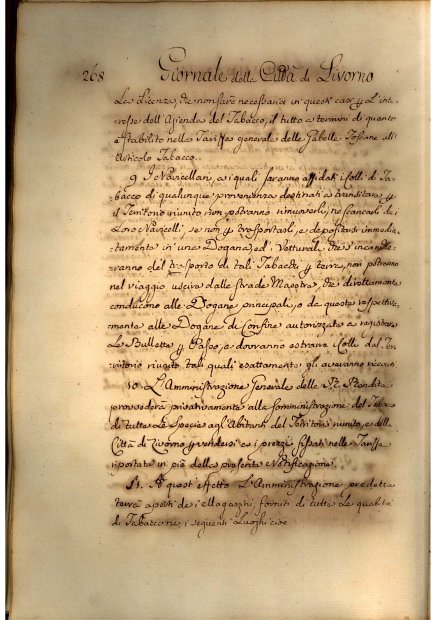 268 Giornale della Città di Livorno
La Licenza, che non sarà necessaria in questi casi p L'inte=
resse dell'Azienda del Tabacco, il tutto a termini di quanto
è stabilito nella Tariffa generale delle Gabelle Toscane all'
Articolo Tabacco.
9. I Navicellari, a quali saranno affidati Colli di Ta=
bacco di qualunque provenienza destinati a transitare p
il Territorio riunito non potranno rimuoverli, ne scaricarli dai
Loro Navicelli, se non p trasportarli, e depositarli immedia=
tamente in una Dogana, ed i Vetturali, che
del trasporto di tali Tabacchi p terra, non potranno
nel viaggio uscire dalle strade Maestre, che direttamente
conducono alle Dogane principali, o da queste respettiva=
mente alle Dogane di Confine autorizzate a registrare
Le Bullette p Passo, e dovranno estrarre Colli dal Ter=
ritorio riunito tali quali esattamente gli avevano ricevuti
10. L'Amministrazione Generale delle RR. Rendite
provvederà privativamente alla somministrazione del Tabacco
di tutte Le Specie agl'Abitanti del Territorio riunito, e della
Città di Livorno p vendersi ai prezzi fissati nella Tariffa
riportata in piè della presente Notificazione.
11. A quest'effetto L'Amministrazione predetta
terrà aperti dei Magazzini, forniti di tutte Le qualità
di Tabacco nei seguenti Luoghi cioè